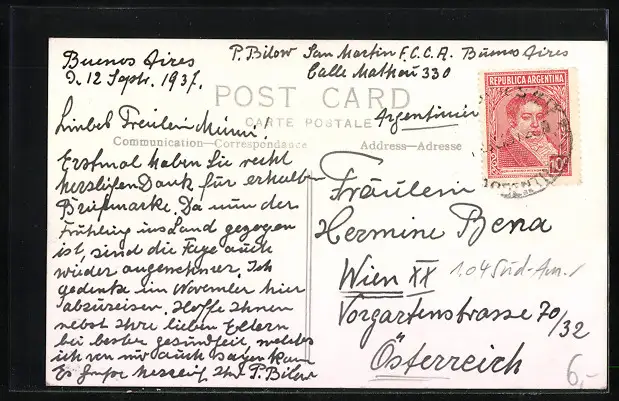 Buenos Aires
D. 12 Septr. 1937.
P. Bilow San Martin F.C.C.A. Buenos Aires
Calle Matheu 330
Argentinien
POST CARD
CARTE POSTALE
Communication—Correspondance
Address—Adresse
REPUBLICA ARGENTINA
10c
Liebes Freulein Minni!
Erstmal haben Sie recht
herzlichen Dank für erhalten
Briefmarke. Da nun der
Frühling ins Land gezogen
ist, sind die Tage auch
wieder angenehmer. Ich
gedenke im November hier
abzureisen. Hoffe Ihnen
nebst Ihre lieben Eltern
bei bester gesundheit, welches
ich von mir auch sagen kann
Es grüsst herzlich Ihr P. Bilow
Fräulein
Hermine Bena
Wien XX
104 Süd-Am.
Vorgartenstrasse 70/32
Österreich
6,-